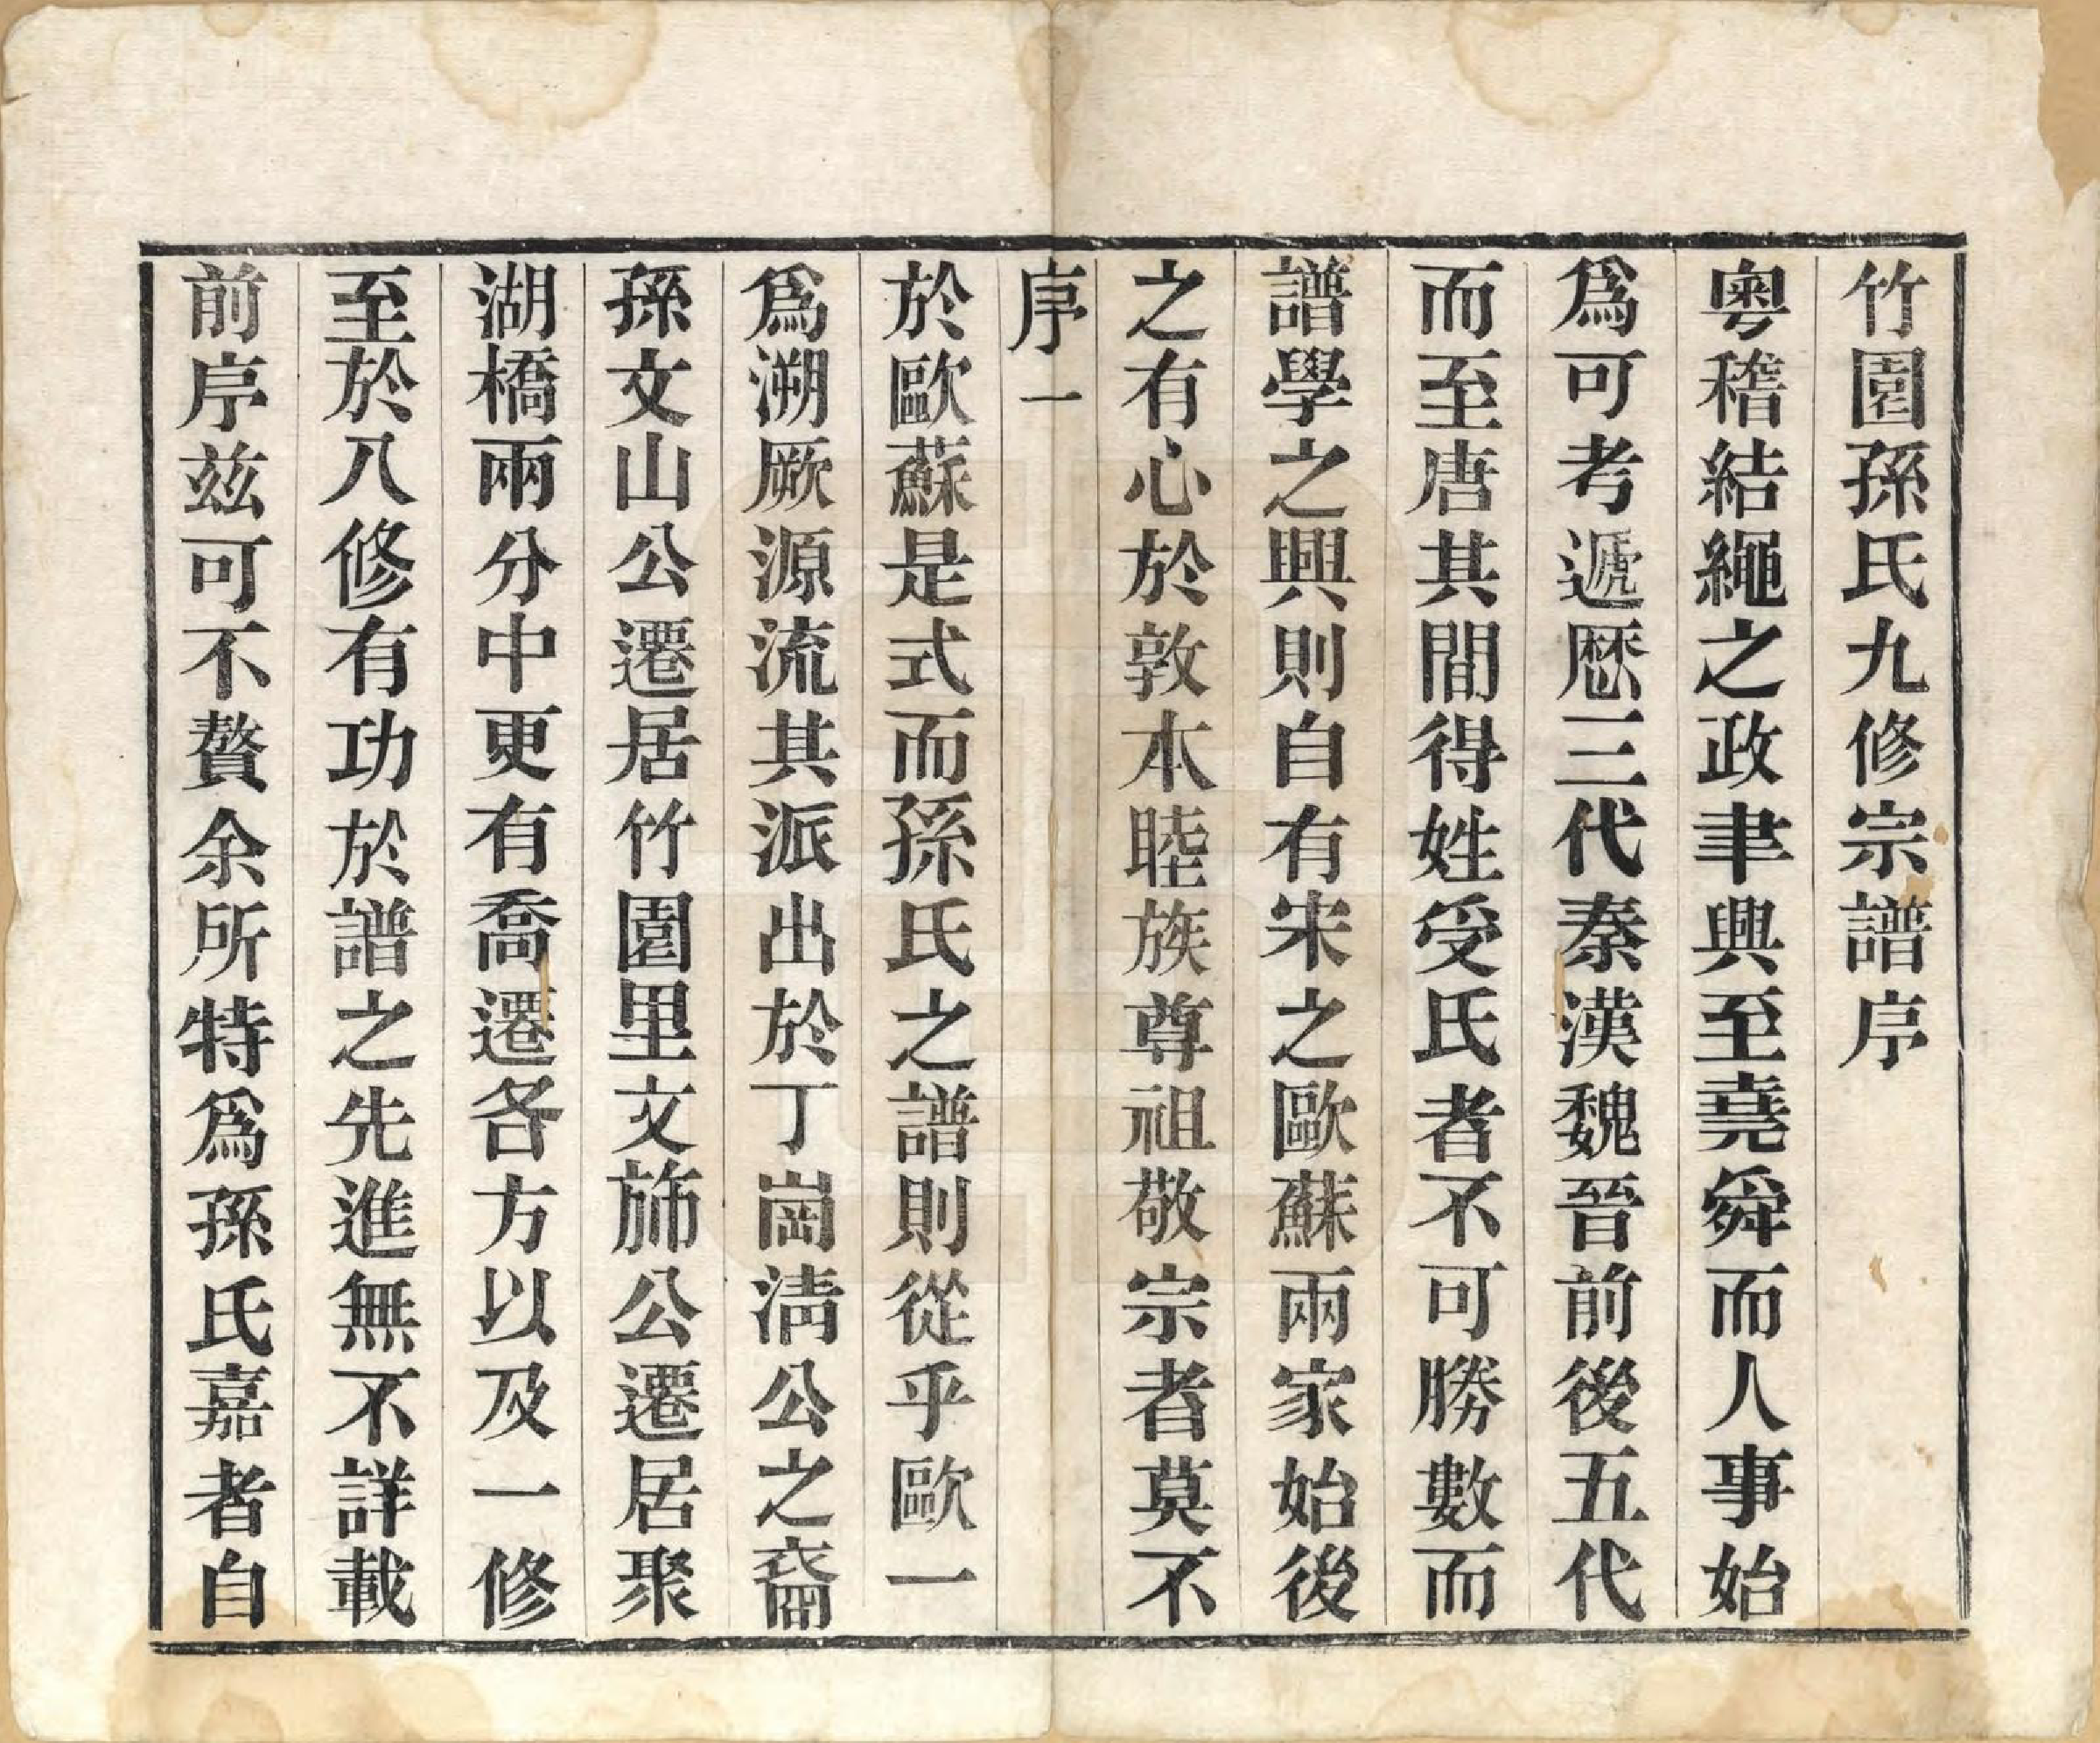 竹園孫氏九修宗譜序
粵稽結繩之政聿興至堯舜而人事始
爲可考遞歷三代秦漢魏晉前後五代
而至唐其間得姓受氏者不可勝數而
譜學之興則自有宋之歐蘇兩家始後
之有心於敦本睦族尊祖敬宗者莫不
序一
於歐蘇是式而孫氏之譜則從乎歐一
爲溯厥源流其派出於丁崗淸公之裔
孫文山公遷居竹園里文旆公遷居聚
湖橋兩分中更有喬遷各方以及一修
至於八修有功於譜之先進無不詳載
前序玆可不贅余所特爲孫氏嘉者自